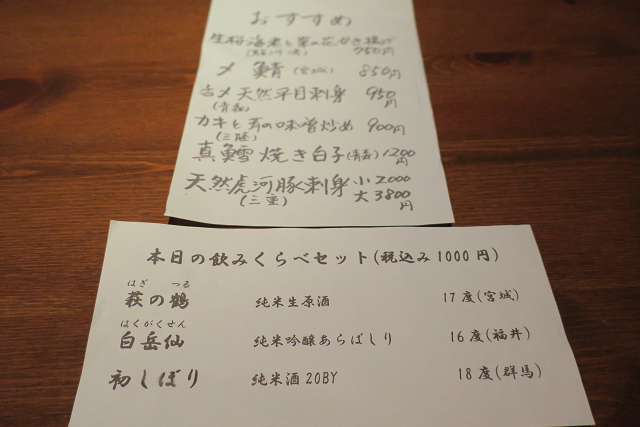 おすすめ
生桜海老と菜の花かき揚げ
(駿河湾) 950円
〆鯖(宮城) 850円
昆〆天然平目刺身 950円
(青森)
カキと葱の味噌炒め 900円
(三陸)
真鱈焼き白子(青森) 1200円
天然虎河豚刺身 小2000
(三重) 大3800円
本日の飲みくらべセット(税込み1000円)
はぎ つる
萩の鶴 純米生原酒 17度(宮城)
はくがくせん
白岳仙 純米吟醸あらばしり 16度(福井)
初しぼり 純米酒20BY 18度(群馬)